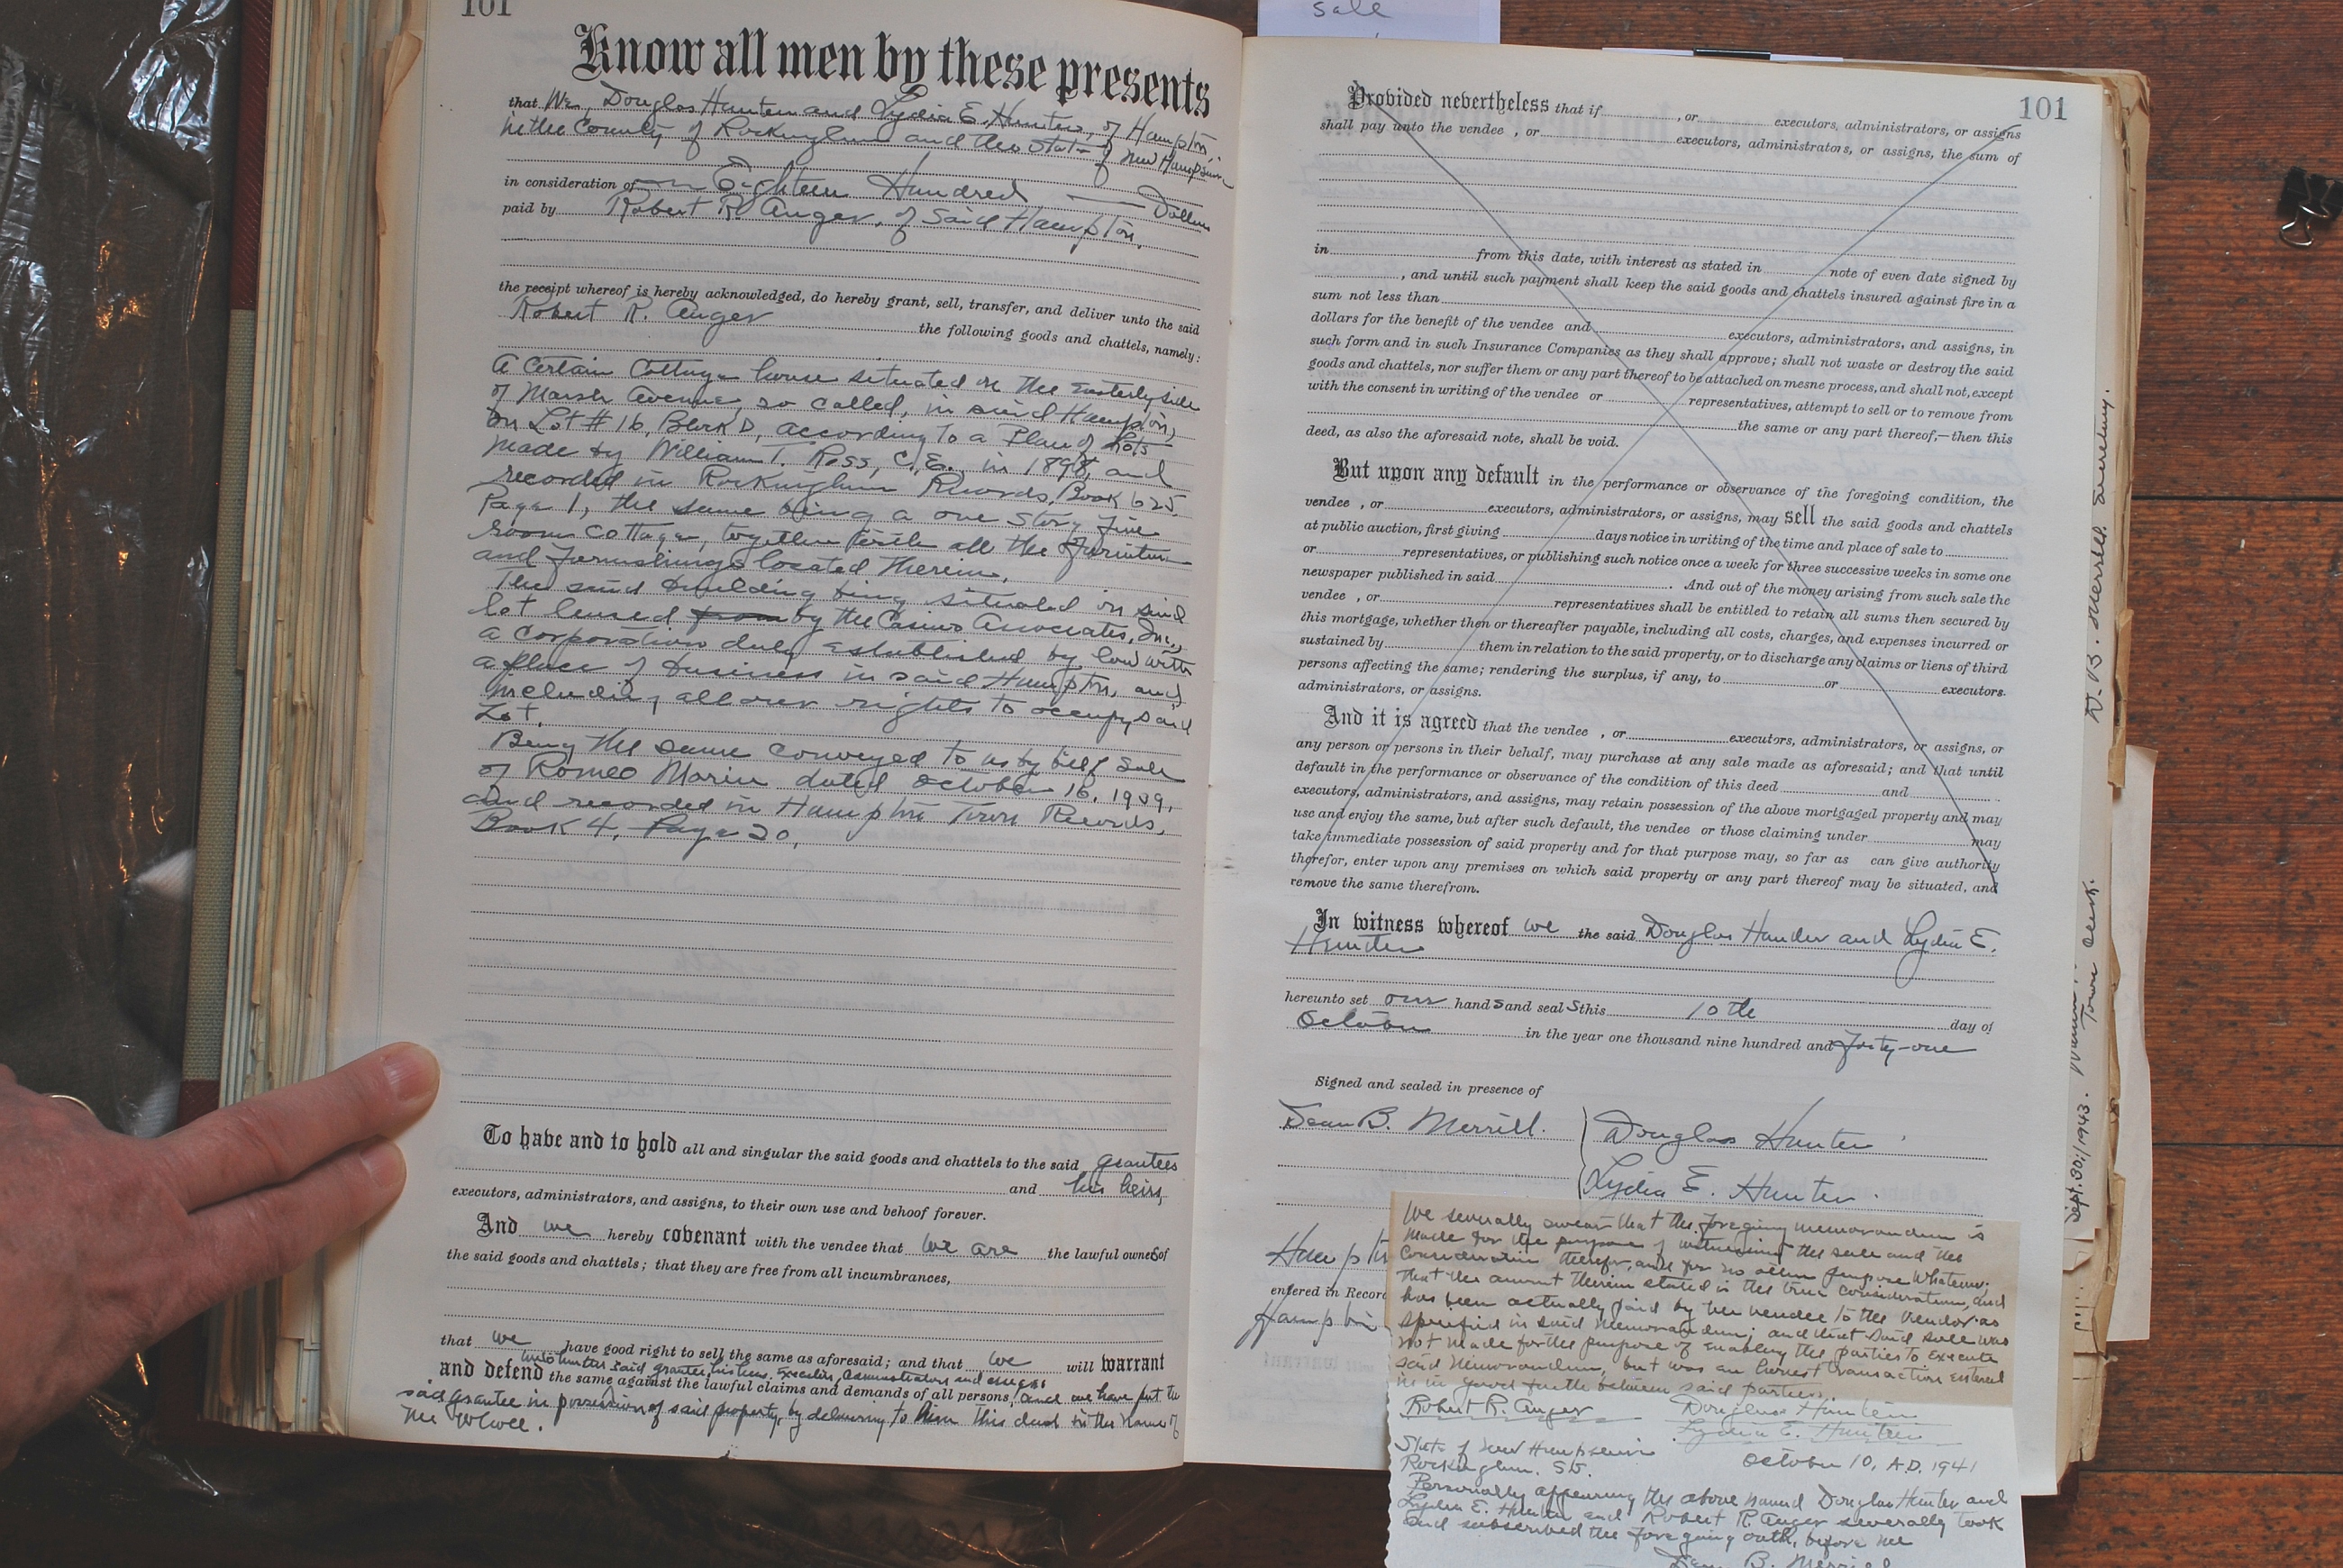 101
Know all men by these presents
that We, Douglas Hunter and Lydia E. Hunter, of Hampton,
in the County of Rockingham and the State of New Hampshire
in consideration of Eighteen Hundred Dollars
paid by Robert R. Auger, of said Hampton,
the receipt whereof is hereby acknowledged, do hereby grant, sell, transfer, and deliver unto the said
Robert R. Auger the following goods and chattels, namely:
A certain Cottage house situated on the Easterly side
of Marsh Avenue, so called, in said Hampton,
on Lot # 16, Block D, according to a Plan of Lots
made by William T. Ross, C.E., in 1898, and
recorded in Rockingham Records, Book 625,
Page 1, the same being a one story five
room cottage, together with all the furniture
and furnishings located therein.
The said building being situated on said
lot leased from by the Casino Associates, Inc.,
a corporation duly established by law with
a place of business in said Hampton, and
including all our rights to occupy said
Lot.
Being the same conveyed to us by bill sale
of Romeo Marin dated October 16, 1909,
and recorded in Hampton Town Records,
Book 4, Page 20,
To have and to hold all and singular the said goods and chattels to the said grantees
and his heirs
executors, administrators, and assigns, to their own use and behoof forever.
And we hereby covenant with the vendee that we are the lawful owners of
the said goods and chattels; that they are free from all incumbrances,
that we have good right to sell the same as aforesaid; and that we will warrant
unto said grantee, his heirs, Executors, administrators and assigns
and defend the same against the lawful claims and demands of all persons, and we have put the
said grantee in possession of said property, by delivering to him this deed in the name of
the whole.
sale
101
Provided nevertheless that if , or executors, administrators, or assigns
shall pay unto the vendee , or executors, administrators, or assigns, the sum of
in from this date, with interest as stated in note of even date signed by
, and until such payment shall keep the said goods and chattels insured against fire in a
sum not less than
dollars for the benefit of the vendee and executors, administrators, and assigns, in
such form and in such Insurance Companies as they shall approve; shall not waste or destroy the said
goods and chattels, nor suffer them or any part thereof to be attached on mesne process, and shall not, except
with the consent in writing of the vendee or representatives, attempt to sell or to remove from
the same or any part thereof,—then this
deed, as also the aforesaid note, shall be void.
But upon any default in the performance or observance of the foregoing condition, the
vendee , or executors, administrators, or assigns, may sell the said goods and chattels
at public auction, first giving days notice in writing of the time and place of sale to
or representatives, or publishing such notice once a week for three successive weeks in some one
newspaper published in said . And out of the money arising from such sale the
vendee , or representatives shall be entitled to retain all sums then secured by
this mortgage, whether then or thereafter payable, including all costs, charges, and expenses incurred or
sustained by them in relation to the said property, or to discharge any claims or liens of third
persons affecting the same; rendering the surplus, if any, to or executors.
administrators, or assigns.
And it is agreed that the vendee , or executors, administrators, or assigns, or
any person or persons in their behalf, may purchase at any sale made as aforesaid; and that until
default in the performance or observance of the condition of this deed and
executors, administrators, and assigns, may retain possession of the above mortgaged property and may
use and enjoy the same, but after such default, the vendee or those claiming under may
take immediate possession of said property and for that purpose may, so far as can give authority
therefor, enter upon any premises on which said property or any part thereof may be situated, and
remove the same therefrom.
In witness whereof we the said Douglas Hunter and Lydia E.
Hunter
hereunto set our hands and seals this 10th day of
October in the year one thousand nine hundred and forty-one
Signed and sealed in presence of
Dean B. Merrill. Douglas Hunter
Lydia E. Hunter.
Hampto
entered in Recor
Hampton
We severally swear that the foregoing memorandum is
made for the purpose of witnessing the sale and the
consideration therefor, and for no other purpose whatever;
that the amount therein stated is the true consideration, and
has been actually paid by the vendee to the vendor as
specified in said memorandum; and that said sale was
not made for the purpose of enabling the parties to execute
said memorandum, but was an honest transaction entered
in in good faith between said parties.
Robert R. Auger Douglas Hunter
Lydia E. Hunter
State of New Hampshire
Rockingham. SS. October 10, A.D. 1941
Personally appearing the above named Douglas Hunter and
Lydia E. Hunter and Robert R. Auger severally took
and subscribed the foregoing oath, before me
Dean B. Merrill
Sept. 30, 1943. Town Clerk. D. B. Merrell Secretary.